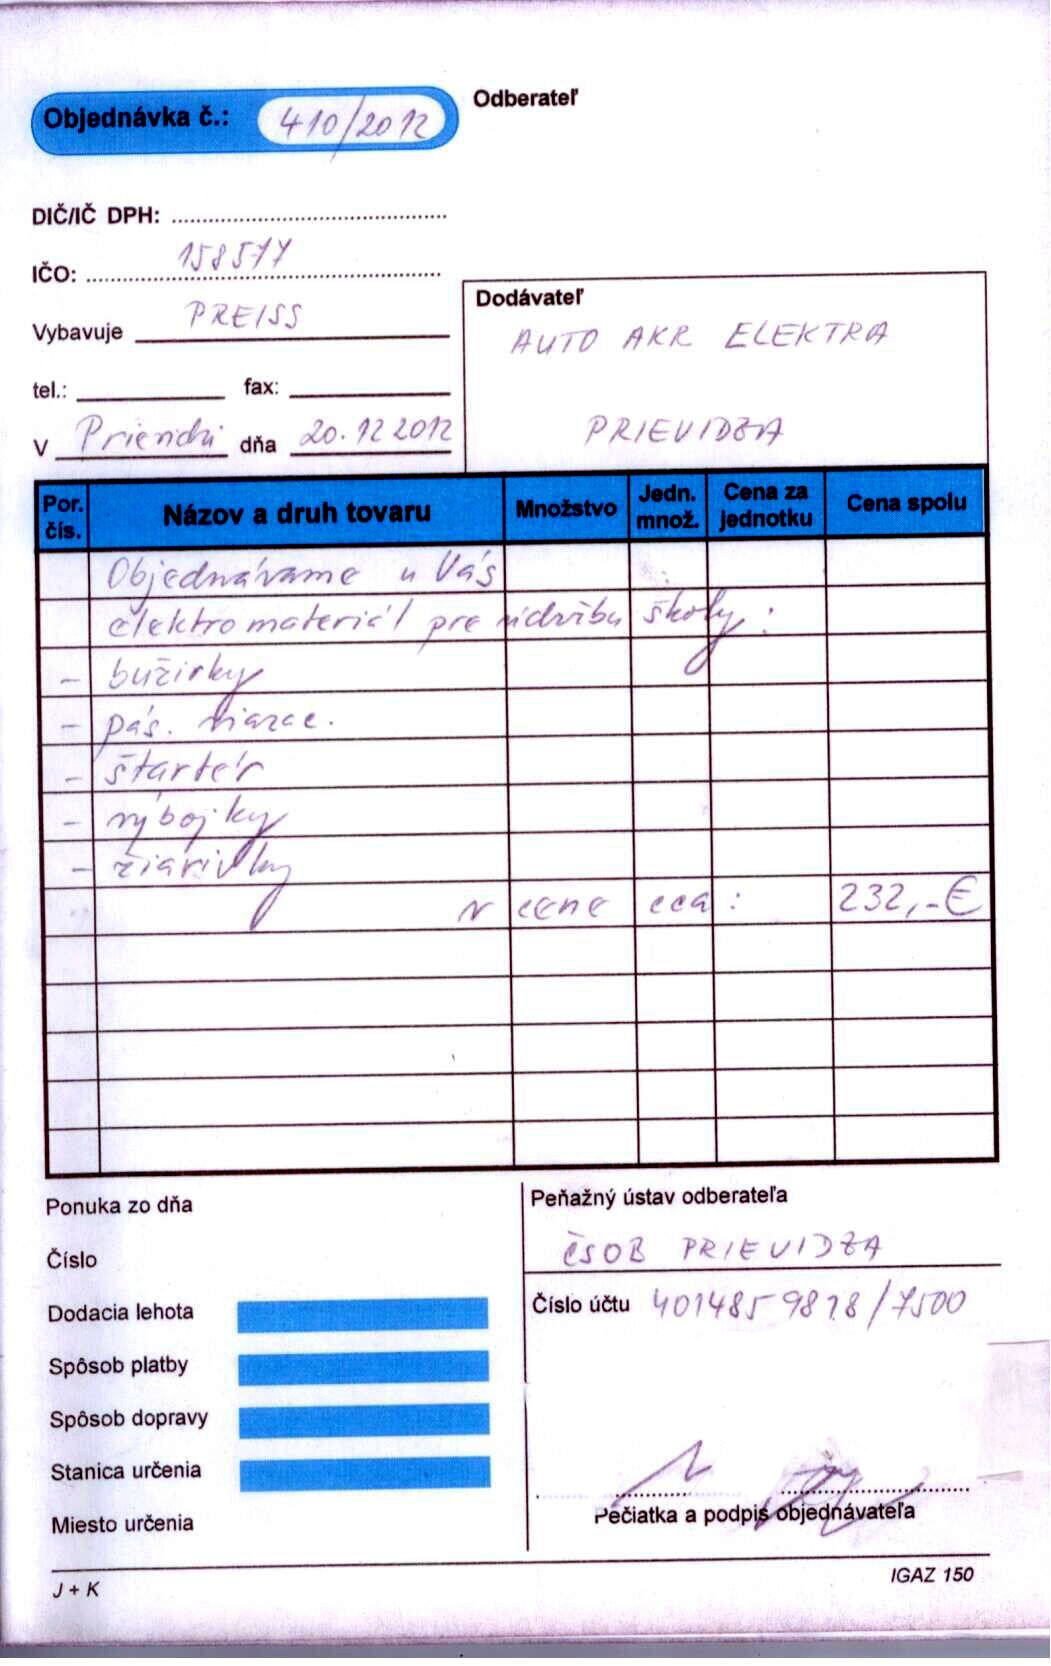 Objednávka č.: 410/2012
Odberateľ
DIČ/IČ DPH:
IČO: 158577
Vybavuje PREISS
tel.: fax:
V Prievidzi dňa 20.12 2012
Dodávateľ
AUTO AKR ELEKTRA
PRIEVIDZA
Por. čís. Názov a druh tovaru Množstvo Jedn. množ. Cena za jednotku Cena spolu
Objednávame u Vás
elektromateriál pre údržbu školy:
- bužírky
- pás. viazac.
- štartér
- výbojky
- žiarivky
v cene cca : 232,-€
Ponuka zo dňa
Číslo
Dodacia lehota
Spôsob platby
Spôsob dopravy
Stanica určenia
Miesto určenia
Peňažný ústav odberateľa
ČSOB PRIEVIDZA
Číslo účtu 4014859828/7500
Pečiatka a podpis objednávateľa
J + K
IGAZ 150